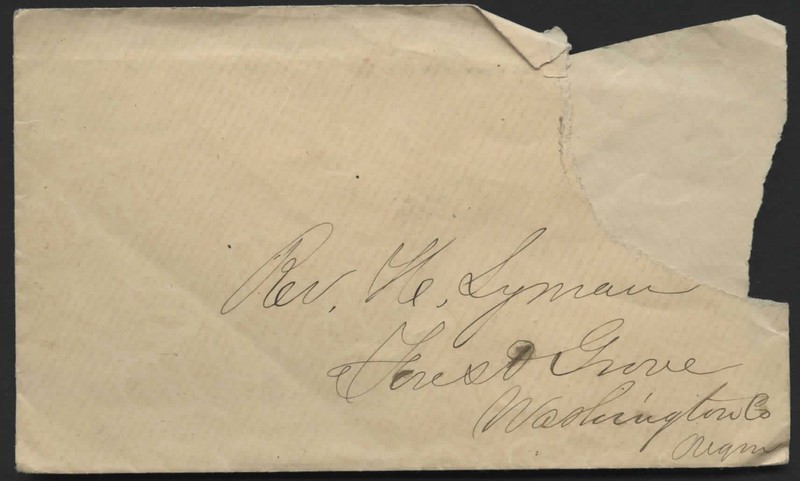 Rev. H. Lyman
Forest Grove
Washington Co
Oregon